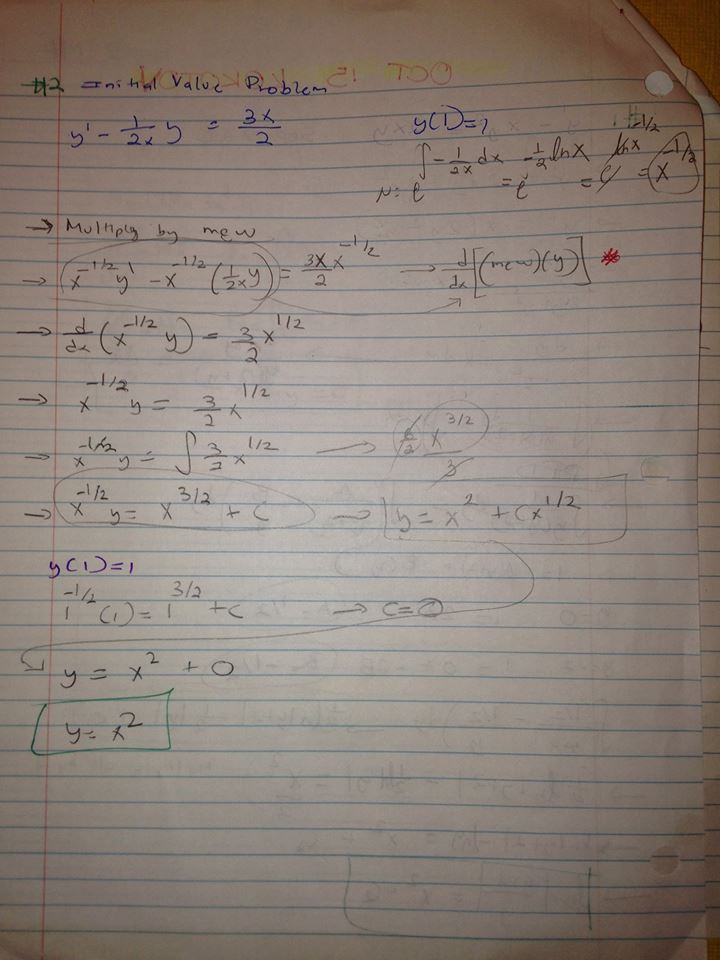 #2 Initial Value Problem
y' - 1/2x y = 3x/2 y(1)=1
μ: e^∫-1/2x dx = e^-1/2 lnx = e^lnx^-1/2 = x^-1/2
→ Multiply by mew
→ x^-1/2 y' - x^-1/2 (1/2x y) = 3x/2 x^-1/2 → d/dx [(mew)(y)] *
→ d/dx (x^-1/2 y) = 3/2 x^1/2
→ x^-1/2 y = 3/2 x^1/2
→ x^-1/2 y = ∫ 3/2 x^1/2 → x^3/2 / 3
→ x^-1/2 y = x^3/2 + C → y = x^2 + Cx^1/2
y(1)=1
1^-1/2 (1) = 1^3/2 + C → C=0
y = x^2 + 0
y = x^2